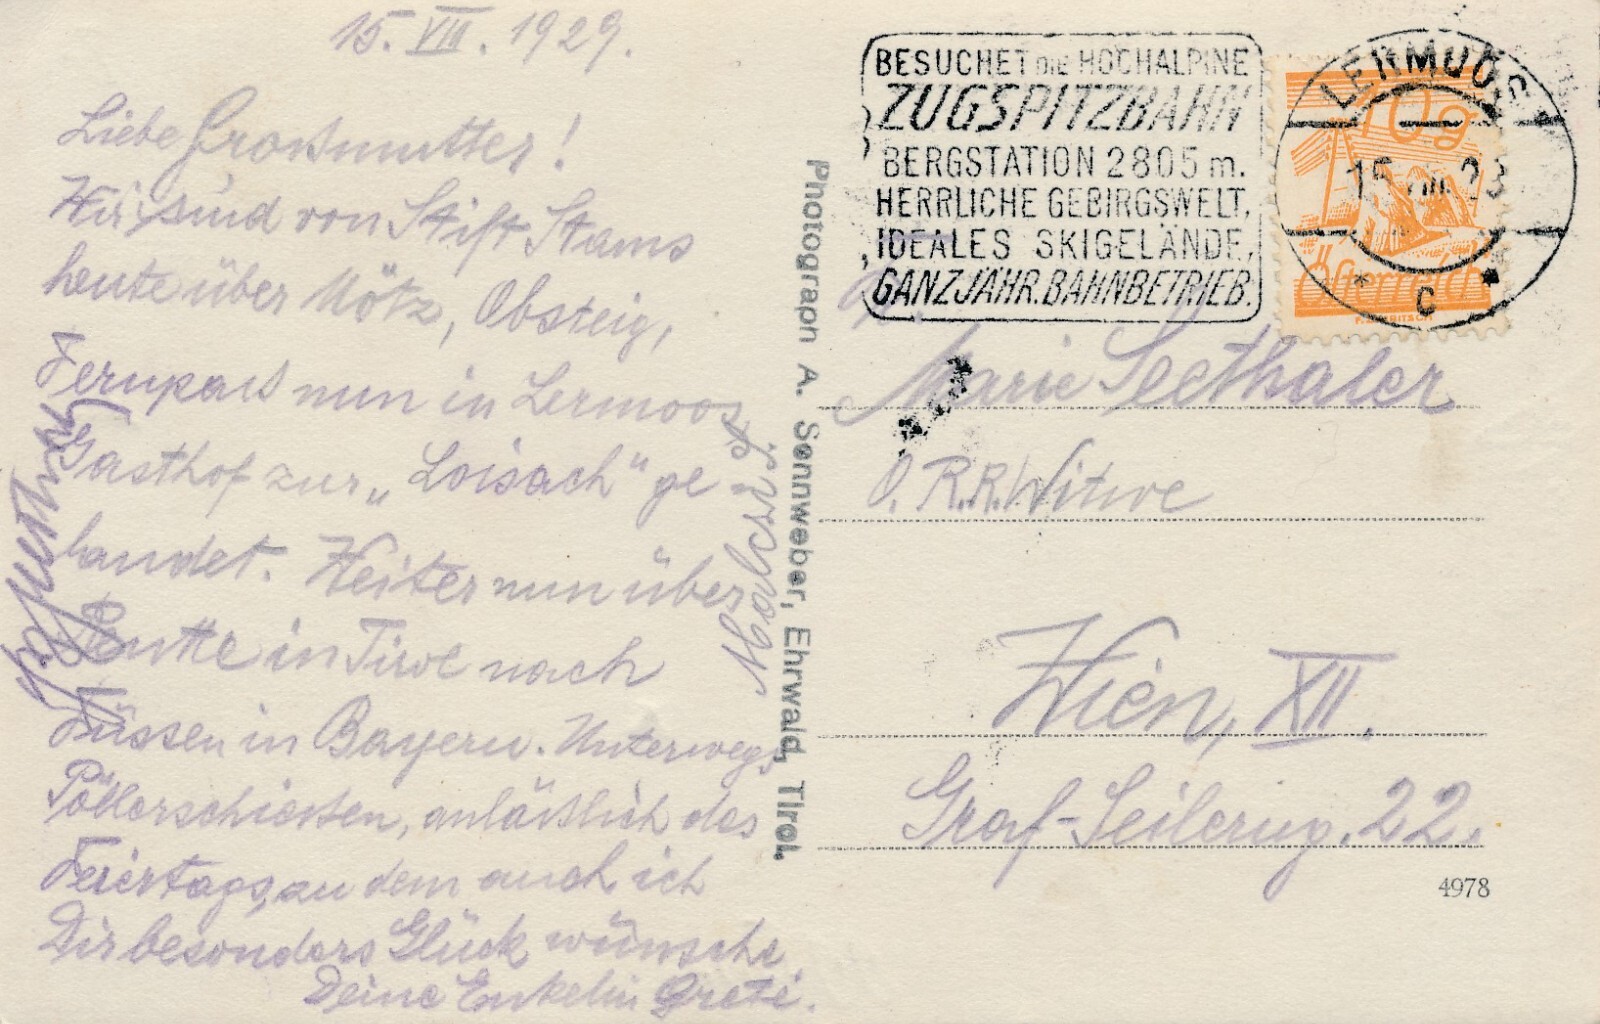 15. VIII. 1929.
Liebe Großmutter!
Wir sind von Stift Stams
heute über Mötz, Obsteig,
Fernpass nun in Lermoos
Gasthof zur „Loisach" ge
landet. Weiter nun über
Reutte in Tirol nach
Füssen in Bayern. Unterwegs
Pöllerschießen, anläßlich des
Feiertags, an dem auch ich
Dir besonders Glück wünsche.
Deine Enkelin Grete.
Photograph A. Sonnweber, Ehrwald, Tirol.
BESUCHET DIE HOCHALPINE
ZUGSPITZBAHN
BERGSTATION 2805 m.
HERRLICHE GEBIRGSWELT,
IDEALES SKIGELÄNDE,
GANZJÄHR. BAHNBETRIEB.
LERMOOS
15. VIII. 29
* C *
10 g
Österreich
Marie Seethaler
O. R. R. Witwe
Wien, XII.
Graf-Seilerng. 22.
4978